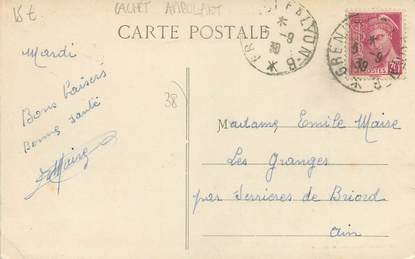 15 €
CACHET AMBULANT
CARTE POSTALE
5 -9
39
GREN
5 -9
39
POSTES
Mardi
Bons baisers
Bonne santé
J Maire
38)
Madame Emile Maire
Les Granges
par Serrieres de Briord
Ain